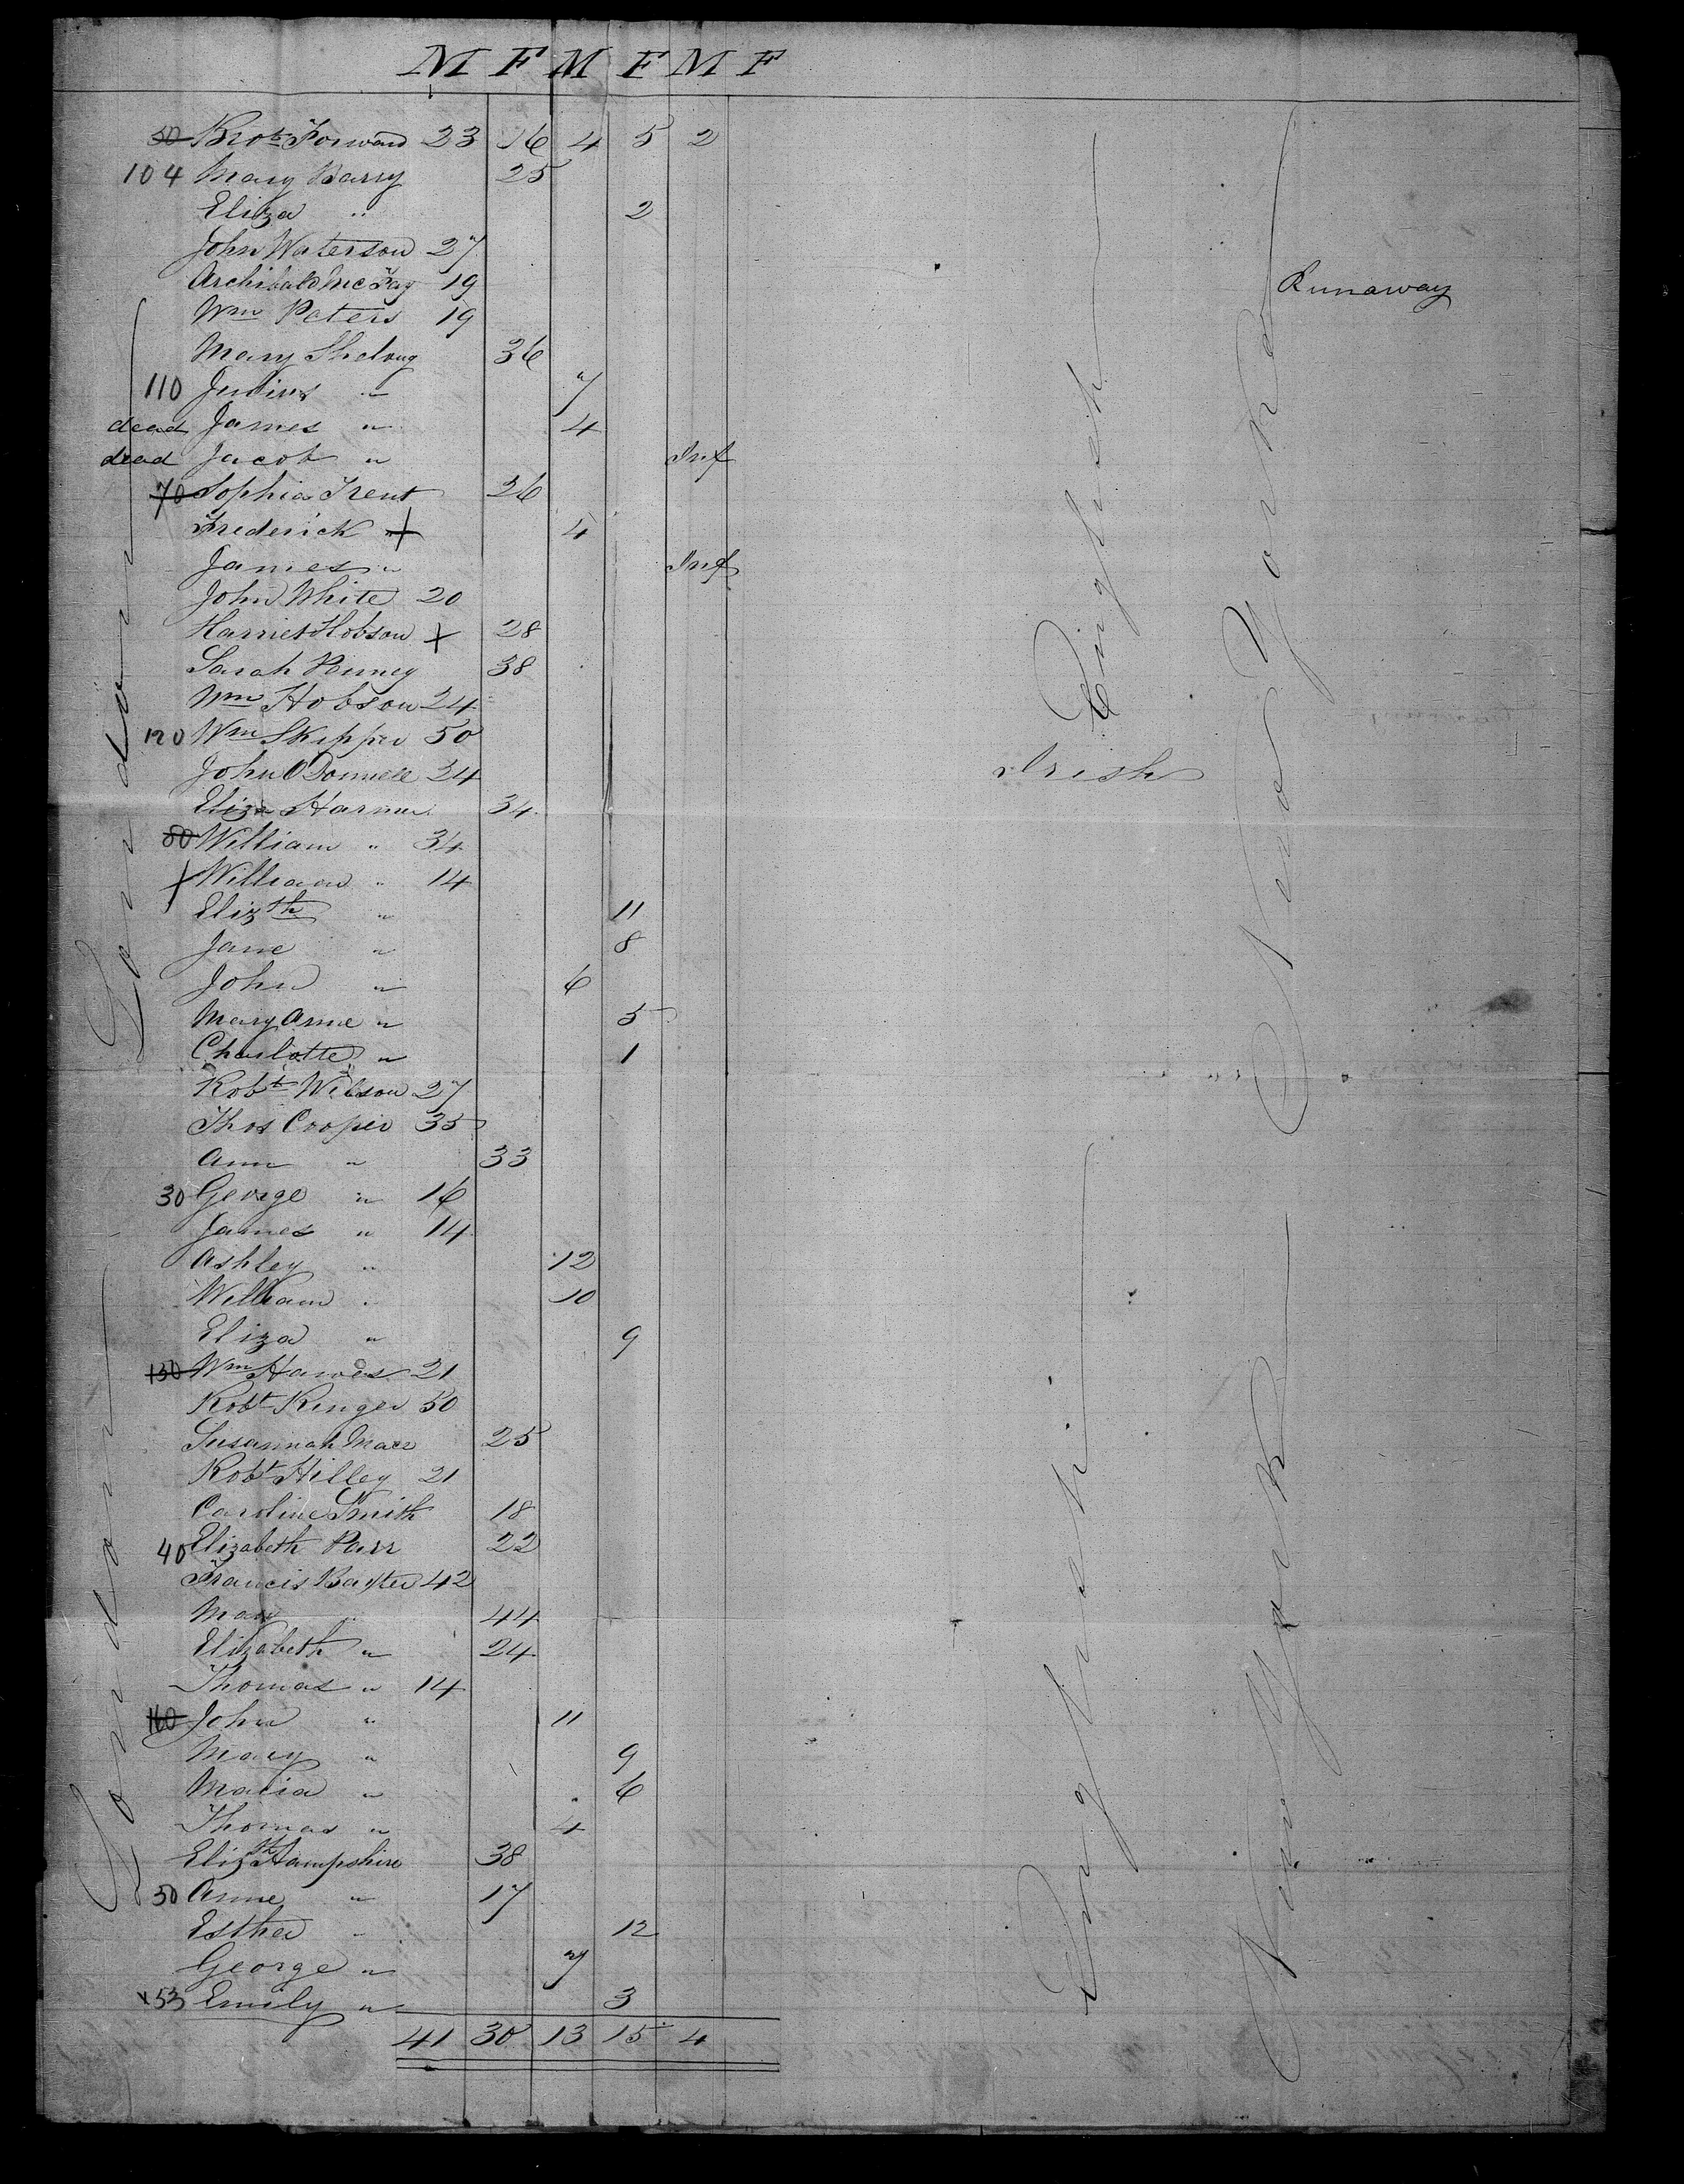 M F M F M F
50 Brot Forward 23 16 4 5 2
104 Mary Barry 25
Eliza " 2
John Waterson 27
Archibald McFay 19 Runaway
Wm Peters 19
Mary Shelong 36
110 Julius " 7
dead James " 4
dead Jacob " Inf
70 Sophia Trent 26
Frederick " + 4
James " Inf
John White 20
Harriet Hobson + 28
Sarah 38
Wm Hobson 24
120 Wm Skipper 50
John O'Donnell 24 Irish
Eliza Harmer 34
80 William " 34
+ William " 14
Elizth " 11
Jane " 8
John " 6
Mary Anne " 5
Charlotte " 1
Robt Wilson 27
Thos Cooper 35
Ann " 33
30 George " 16
James " 14
Ashley " 12
William " 10
Eliza " 9
130 Wm Hawes 21
Robt Ringer 50
Susannah 25
Robt Hilley 21
Caroline Smith 18
40 Elizabeth Parr 22
Francis Baxter 42
Mary " 44
Elizabeth " 24
Thomas " 14
John " 11
Mary " 9
Maria " 6
Thomas " 4
Elizth Hampshire 38
50 Anne " 17
Esther " 12
George " 7
x53 Emily " 3
41 30 13 15 4
London
London
English
English
New York
New York